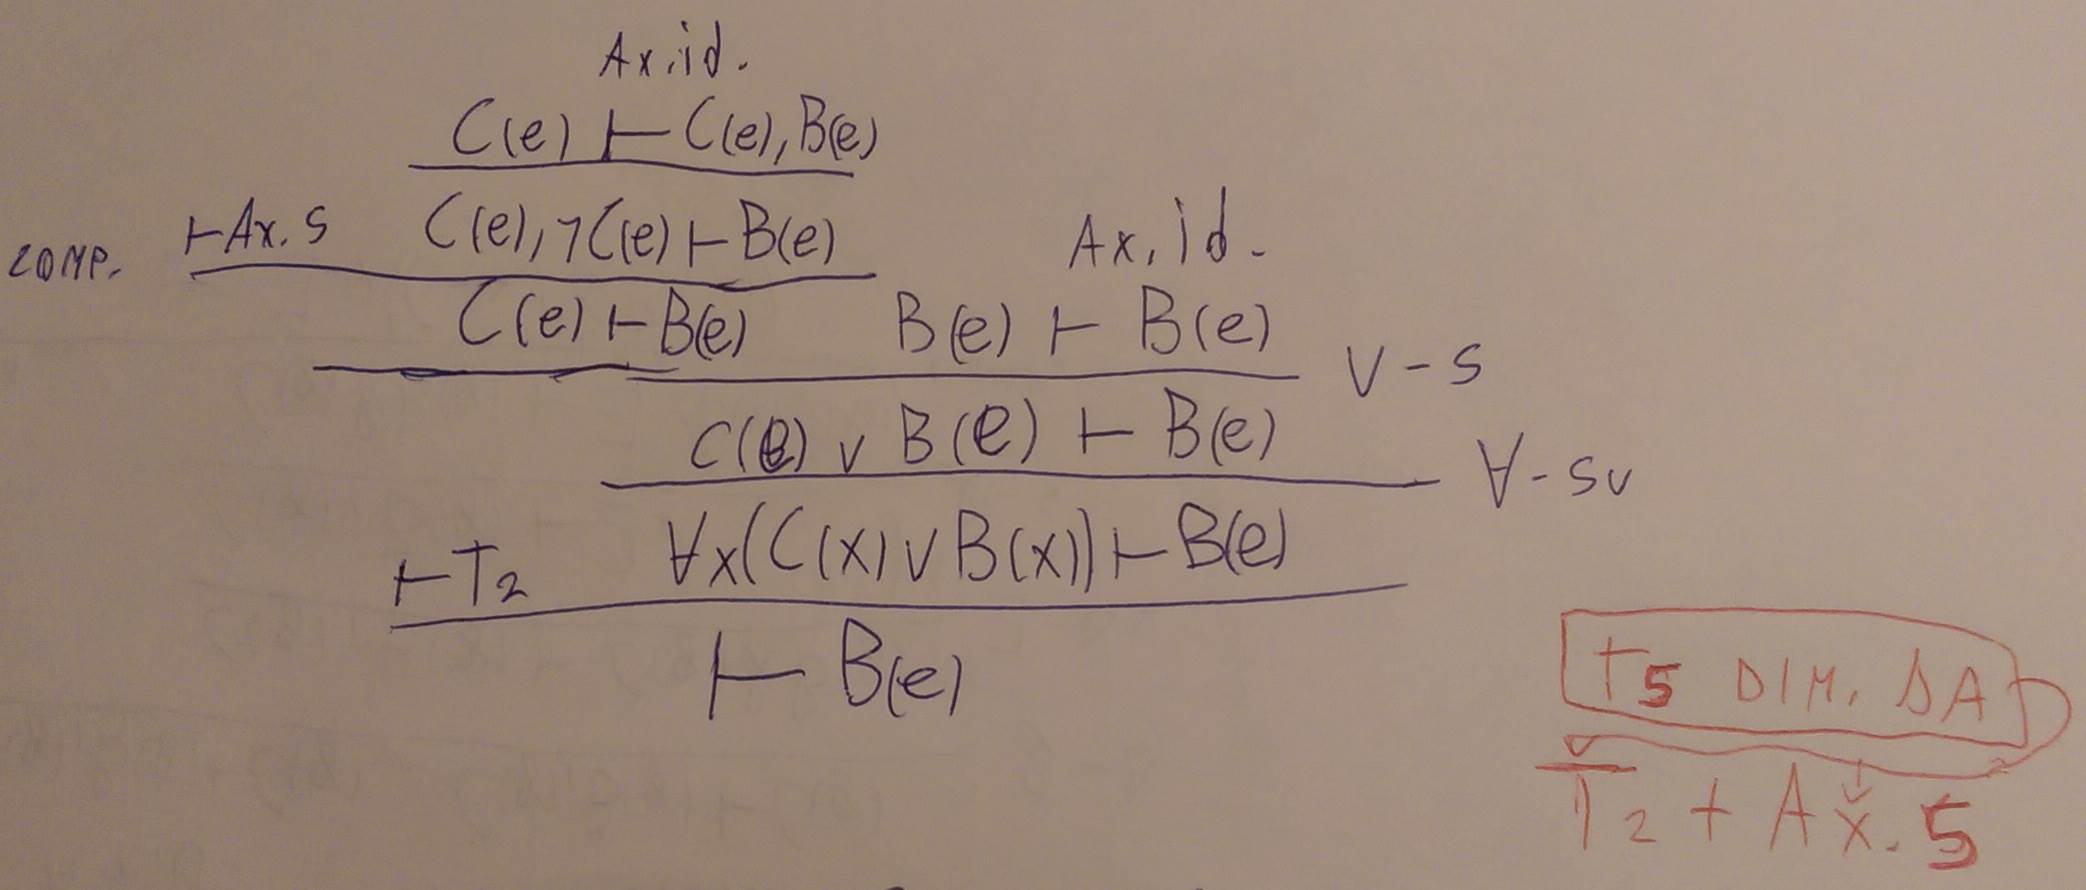 Ax. id.
C(e) ⊢ C(e), B(e)
COMP. ⊢Ax. 5 C(e), ¬C(e) ⊢ B(e) Ax. id.
C(e) ⊢ B(e) B(e) ⊢ B(e) ∨-S
C(e) ∨ B(e) ⊢ B(e) ∀-Sv
⊢T2 ∀x(C(x) ∨ B(x)) ⊢ B(e)
⊢ B(e)
T5 DIM. DA
T2 + Ax. 5